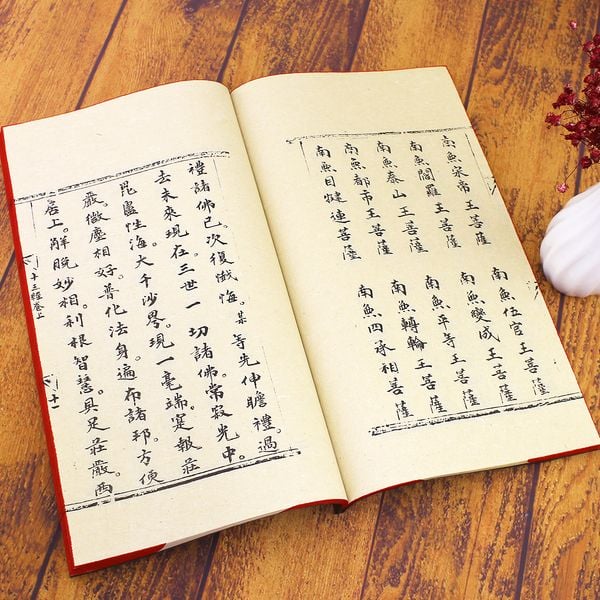 南無宋帝王菩薩 南無伍官王菩薩
南無閻羅王菩薩 南無變成王菩薩
南無泰山王菩薩 南無平等王菩薩
南無都市王菩薩 南無轉輪王菩薩
南無目犍連菩薩 南無四承相菩薩
禮諸佛已。次復懺悔。某等先伸瞻禮。過
去未來現在三世一切諸佛。常寂光中。
毘盧性海。大千沙界。現一毫端。寔報莊
嚴。微塵相好。普化法身。遍布諸邦。方便
居上。解脫妙相。利根智慧。具足莊嚴。西
十三經卷上 十一